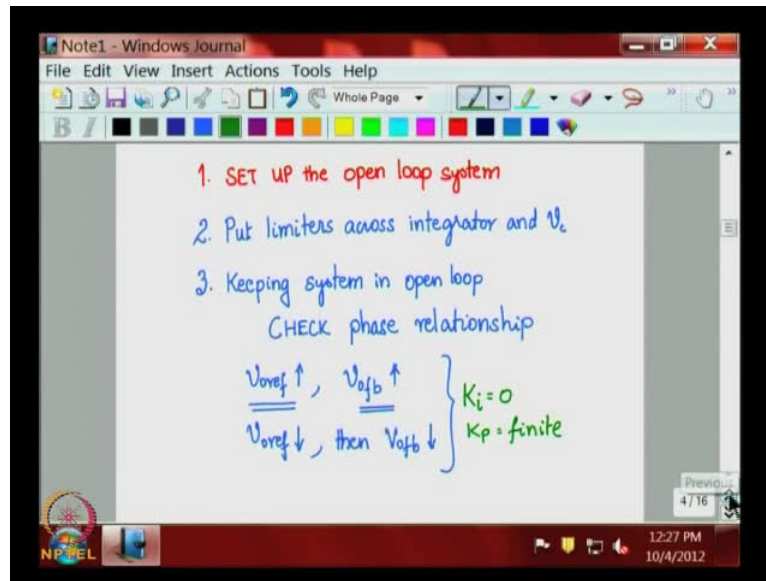 Note1 - Windows Journal
File Edit View Insert Actions Tools Help
Whole Page
B I
1. SET UP the open loop system
2. Put limiters across integrator and Vc
3. Keeping system in open loop
CHECK phase relationship
Voref ↑, Vofb ↑
Voref ↓, then Vofb ↓
Ki = 0
Kp = finite
Previous
4 / 16
NPTEL
12:27 PM
10/4/2012